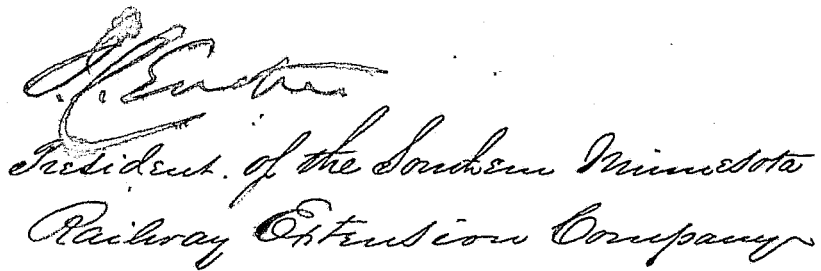 President. of the Southern Minnesota
Railway Extension Company